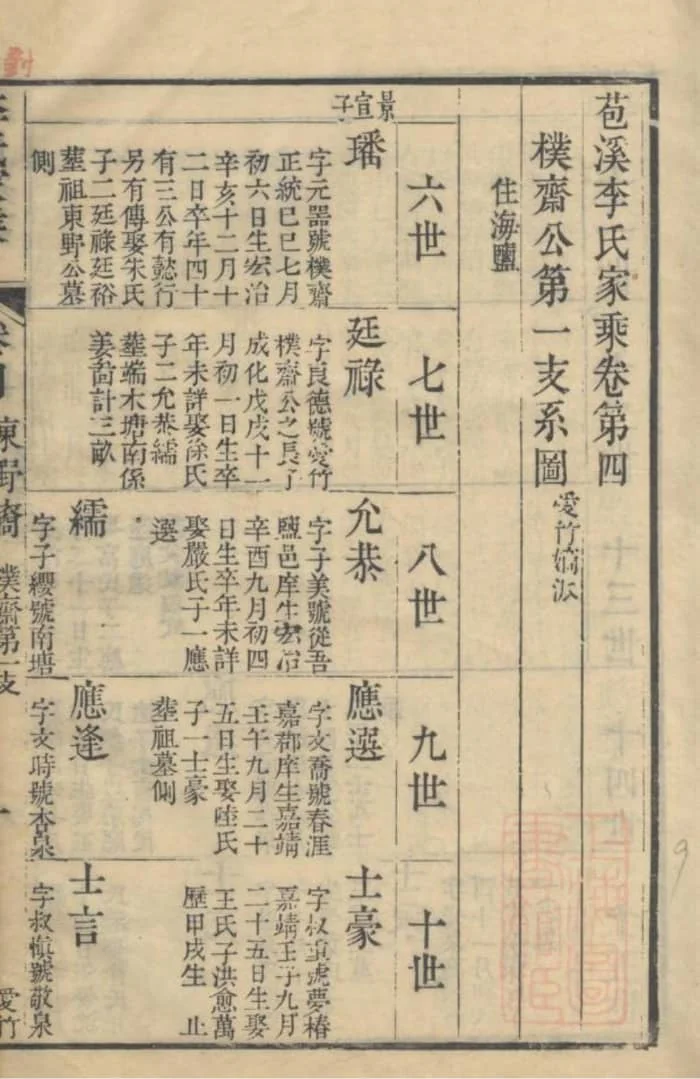 苞溪李氏家乘卷第四
樸齋公第一支系圖
愛竹嫡派
住海鹽
六世
七世
八世
九世
十世
景宣子
璠
字元器號樸齋
正統己巳七月
初六日生宏治
辛亥十二月十
二日卒年四十
有三公有懿行
另有傳娶朱氏
子二廷祿廷裕
塟祖東野公墓
側
廷祿
字良德號愛竹
樸齋公之長子
成化戊戌十一
月初一日生卒
年未詳娶徐氏
子二允恭繻
塟端木塘南係
姜啚計三畝
允恭
字子美號從吾
鹽邑庠生宏治
辛酉九月初四
日生卒年未詳
娶嚴氏子一應
選
應選
字文喬號春涯
嘉郡庠生嘉靖
壬午九月二十
五日生娶陸氏
子一士豪
塟祖墓側
士豪
字叔重號夢椿
嘉靖壬子九月
二十五日生娶
王氏子洪愈萬
歷甲戌生 止
繻
字子纓號南塘
應逢
字文時號杏泉
士言
字叔慎號敬泉
卷四
樸齋第一支
一
愛竹
劉